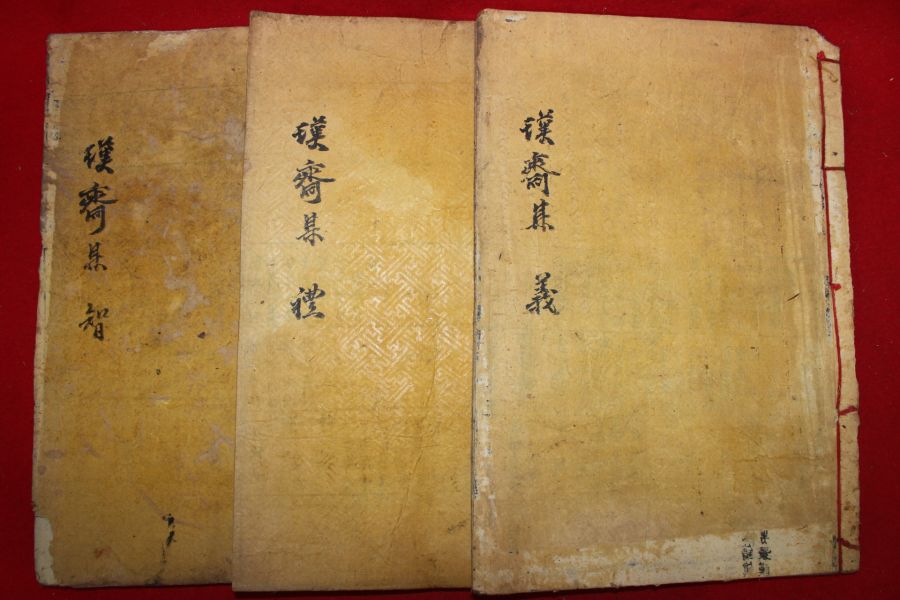 璞齋集 義
璞齋集 禮
璞齋集 智